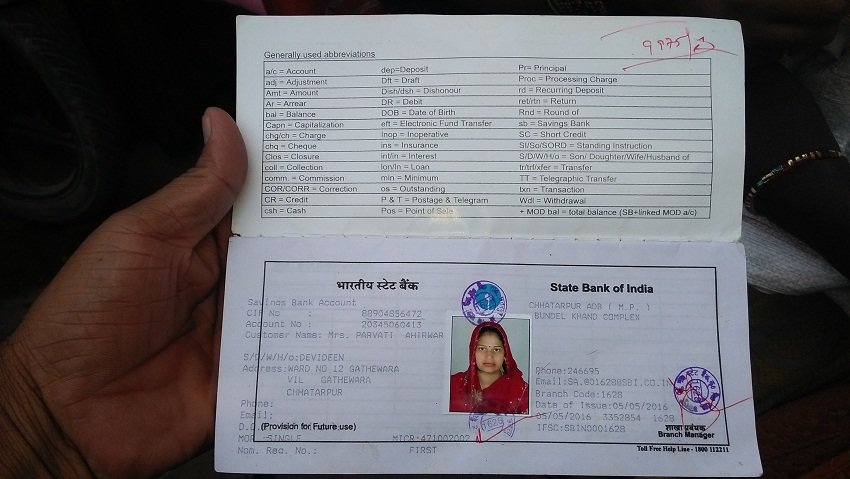 9975/-
Generally used abbreviations
a/c = Account dep=Deposit Pr= Principal
adj = Adjustment Dft = Draft Proc = Processing Charge
Amt = Amount Dish/dsh = Dishonour rd = Recurring Deposit
Ar = Arrear DR = Debit ret/rtn = Return
bal = Balance DOB = Date of Birth Rnd = Round of
Capn = Capitalization eft = Electronic Fund Transfer sb = Savings Bank
chg/ch = Charge Inop = Inoperative SC = Short Credit
chq = Cheque ins = Insurance SI/So/SORD = Standing Instruction
Clos = Closure int/in = Interest S/D/W/H/o = Son/ Doughter/Wife/Husband of
coll = Collection lon/ln = Loan tr/trf/xfer = Transfer
comm. = Commission min = Minimum TT = Telegraphic Transfer
COR/CORR = Correction os = Outstanding txn = Transaction
CR = Credit P & T = Postage & Telegram Wdl = Withdrawal
csh = Cash Pos = Point of Sele + MOD bal = total balance (SB+linked MOD a/c)
भारतीय स्टेट बैंक State Bank of India
Savings Bank Account CHHATARPUR ADB ( M.P. )
CIF No : 88904856472 BUNDEL KHAND COMPLEX
Account No : 20345060413
Customer Name: Mrs. PARVATI AHIRWAR
S/D/W/H/o:DEVIDEEN
Address:WARD NO 12 GATHEWARA Phone:246695
VIL GATHEWARA Email:SA.01628@SBI.CO.IN
CHHATARPUR Branch Code:1628
Phone: Date of Issue:05/05/2016
Email: 05/05/2016 3352854 1628
D.O. (Provision for Future use) IFSC:SBIN0001628
शाखा प्रबंधक
Branch Manager
MOP:SINGLE MICR:471002002
Nom. Reg. No.: FIRST
Toll Free Help Line - 1800 112211